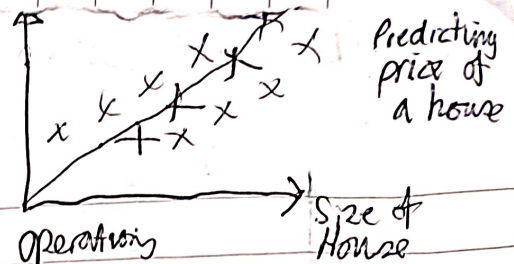 Predicting
price of
a house
Size of
House
Operations